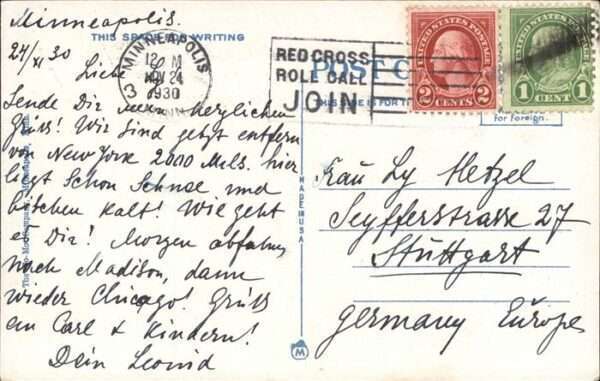 Minneapolis.
24/XI 30
THIS SPACE FOR WRITING
MINNEAPOLIS
12 M
NOV 24
1930
MINN.
3
RED CROSS
ROLL CALL
JOIN
UNITED STATES POSTAGE
2 CENTS 2
UNITED STATES POSTAGE
1 CENT 1
POSTC
THIS SIDE IS FOR TH
For Foreign
Liebe
Sende Dir herzlichen
Grüß! Wir sind jetzt entfern
von New York 2000 Mls. hier
liegt Schon Schnee und
bischen kalt! Wie geht
es Dir! Morgen abfahren
nach Madison, dann
wieder Chicago! Grüß
an Carl & Kindern!
Dein Leonid
MADE IN USA
M
Frau Ly Hetzel
Seyfferstrasse 27
Stuttgart
Germany Europe